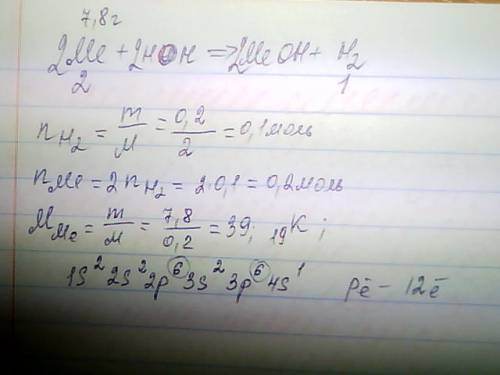 7,8г
2Me + 2HOH => 2MeOH + H₂
2 1
n H₂ = m/M = 0,2/2 = 0,1 моль
n Me = 2 n H₂ = 2·0,1 = 0,2 моль
M Me = m/м = 7,8/0,2 = 39; ₁₉K;
1s² 2s² 2p⁶ 3s² 3p⁶ 4s¹ pē – 12ē